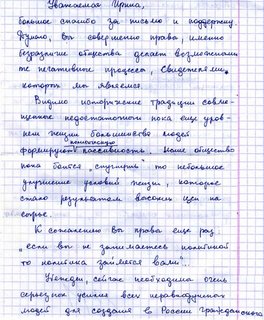 Уважаемая Ирина,
большое спасибо за письмо и поддержку
Думаю, вы совершенно правы, именно
безразличие общества делает возможными
те негативные процессы, свидетелями
которых мы являемся.
Видимо исторические традиции совме-
щенные недостаточным пока еще уров-
нем жизни большинства людей
формируют политическую пассивность. Наше общество
пока боится „спугнуть" то небольшое
улучшение условий жизни, которое
стало результатом высоких цен на
сырье.
К сожалению вы правы еще раз
„если вы не занимаетесь политикой
то политика займется вами".
Убежден, сейчас необходимы очень
серьезные усилия всех неравнодушных
людей для создания в России гражданского